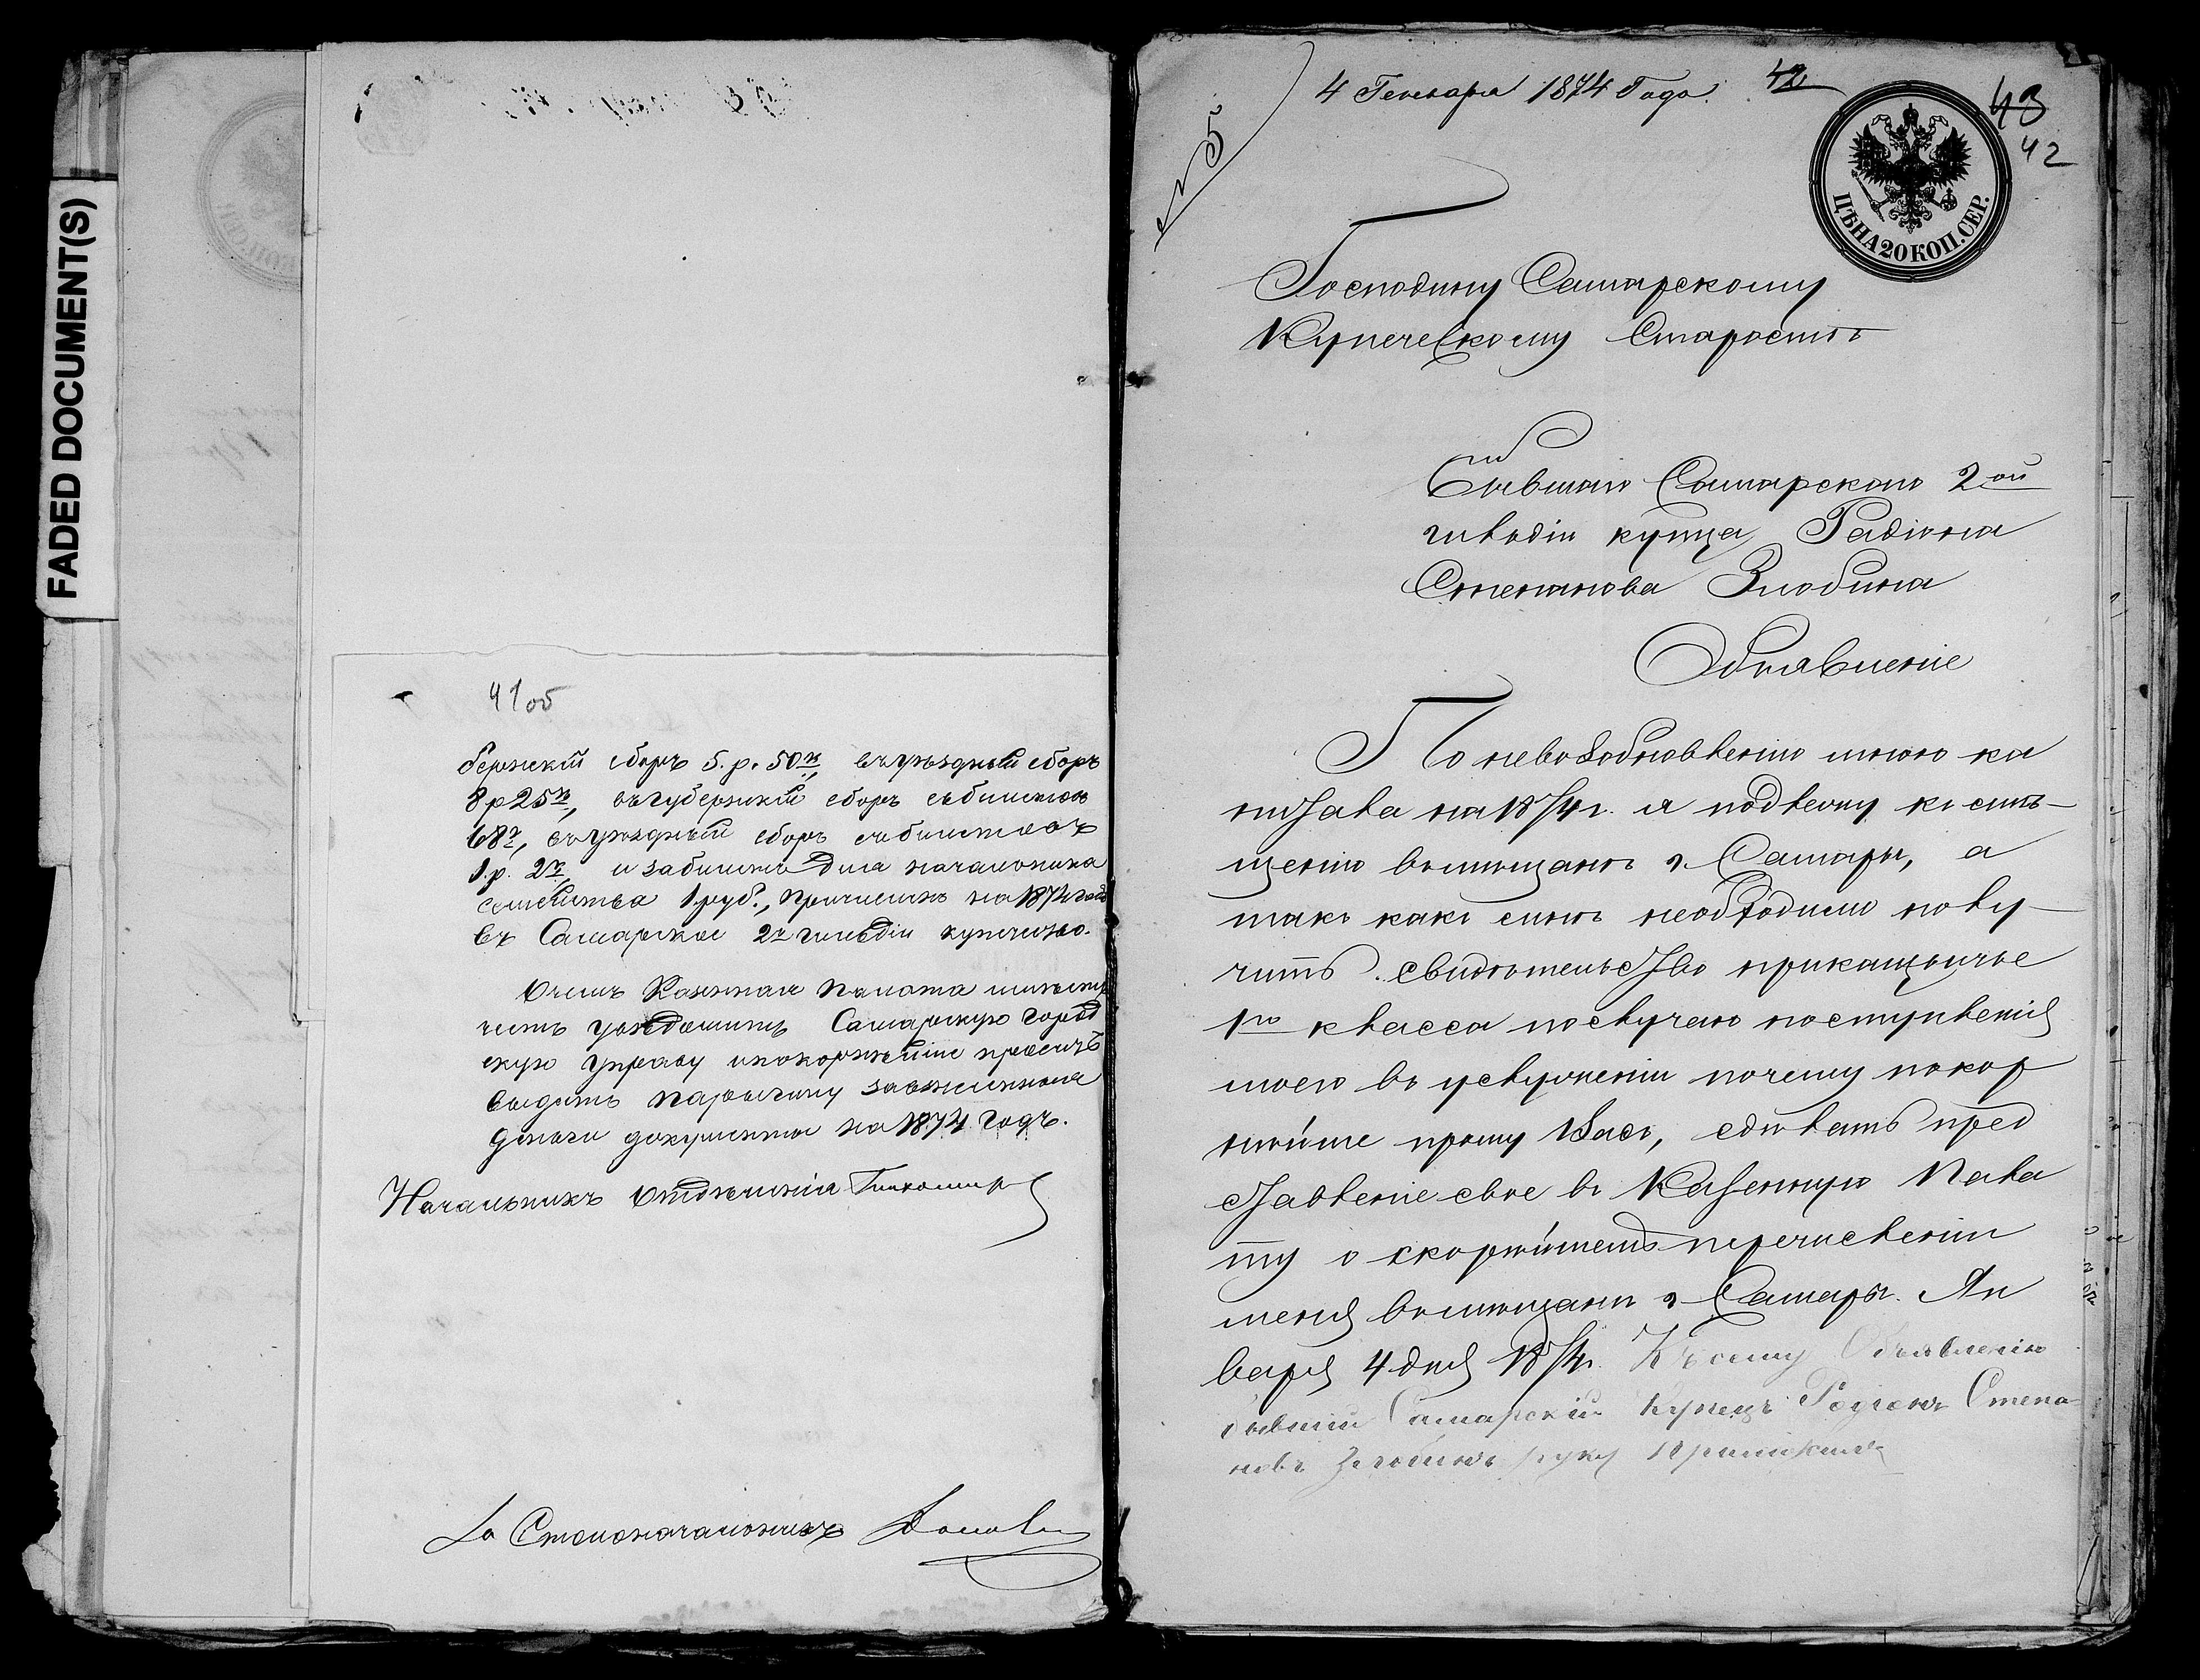 FADED DOCUMENT(S)
41об
бернскій сборъ 5. р. 50 к., въ уѣздный сборъ
8 р 25 к, въ губернскій сборъ съ билетовъ
68 к, въ уѣздный сборъ съ билетовъ
1 р. 2 к, и за билетъ для начальника
семейства 1 руб., причисленъ на 1874 годъ
въ Самарское 2й гильдіи купечество.
О чемъ Казенная Палата имѣетъ
честь увѣдомить Самарскую Город
скую Управу и покорнѣйше проситъ
выдать за внесенныя
деньги документы на 1874 годъ.
Начальникъ Отдѣленія Тихомир
За Столоначальникъ
№ 5
4 Генваря 1874 Года.
42
43
42
ЦѢНА 20 КОП. СЕР.
Господину Самарскому
Купеческому Старостѣ
Бывшаго Самарскаго 2ой
гильдіи купца Радіона
Степанова Злобина
Объявленіе
По невозобновленію мною ка
питала на 1874 г. я подлежу къ смѣ-
щенію въ мѣщане г. Самары, а
такъ какъ мнѣ необходимо полу-
чить свидѣтельство прикащичье
1го класса по случаю поступленія
моего въ услуженіи почему покор
нѣйше прошу Васъ, сдѣлать пред
ставленіе свое въ Казенную Пала
ту о скорѣйшемъ перечисленіи
меня въ мѣщане г. Самары. Ян
варя 4 дня 1874 г. Къ сему Объявленію
бывшій Самарскій Купецъ Родіонъ Степа-
новъ Злобинъ руку приложилъ